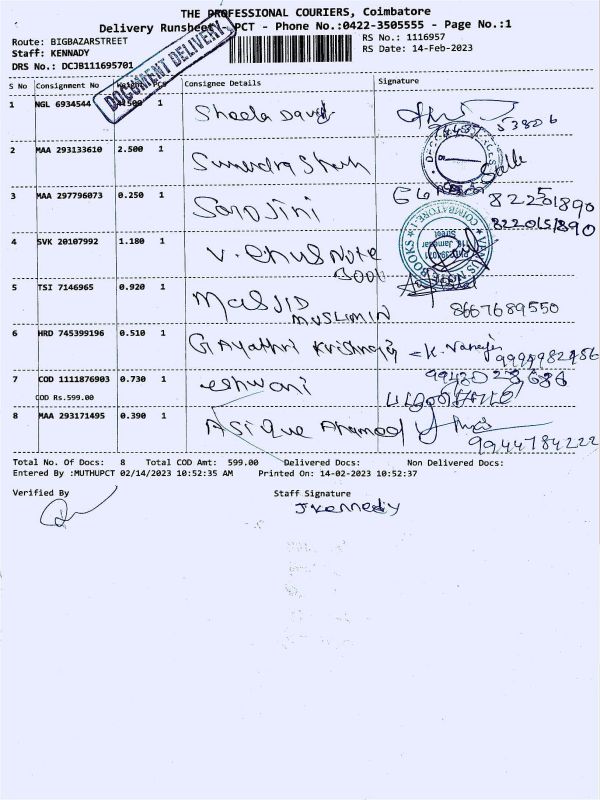 THE PROFESSIONAL COURIERS, Coimbatore
Delivery Runsheet - PCT - Phone No.:0422-3505555 - Page No.:1
Route: BIGBAZARSTREET
RS No.: 1116957
Staff: KENNADY
RS Date: 14-Feb-2023
DRS No.: DCJB111695701
DOCUMENT DELIVERY
S No Consignment No Weight Pcs Consignee Details Signature
1 NGL 6934544 1 Sheela David
2 MAA 293133610 2.500 1 Surendra Shah
3 MAA 297796073 0.250 1 Sarojini
8220151890
4 SVK 20107992 1.180 1 V. Enus Note Book
5 TSI 7146965 0.920 1 MASJID MUSLIMIN 8667689550
6 HRD 745399196 0.510 1 GAyathri Krishna
7 COD 1111876903 0.730 1 eshwani
COD Rs.599.00
8 MAA 293171495 0.390 1 ASique Ahamed 9944784222
Total No. Of Docs: 8 Total COD Amt: 599.00 Delivered Docs: Non Delivered Docs:
Entered By :MUTHUPCT 02/14/2023 10:52:35 AM Printed On: 14-02-2023 10:52:37
Verified By Staff Signature
J Kennedy